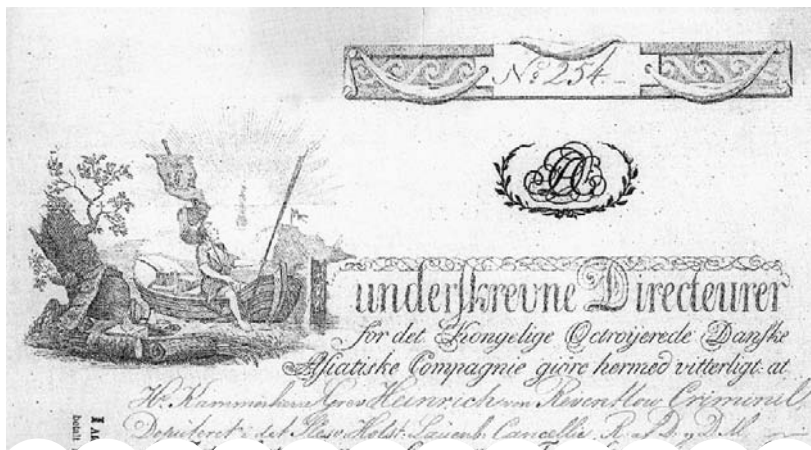 No 254.
I underskrevne Directeurer
for det Kongelige Octroijerede Danske
Asiatiske Compagnie giöre hermed vitterligt: at
Hr. Kammerherre Greve Heinrich von Reventlow Criminell
Deputeret i det Slesv. Holst. Lauenb. Cancellie, R. af D. og D. M.